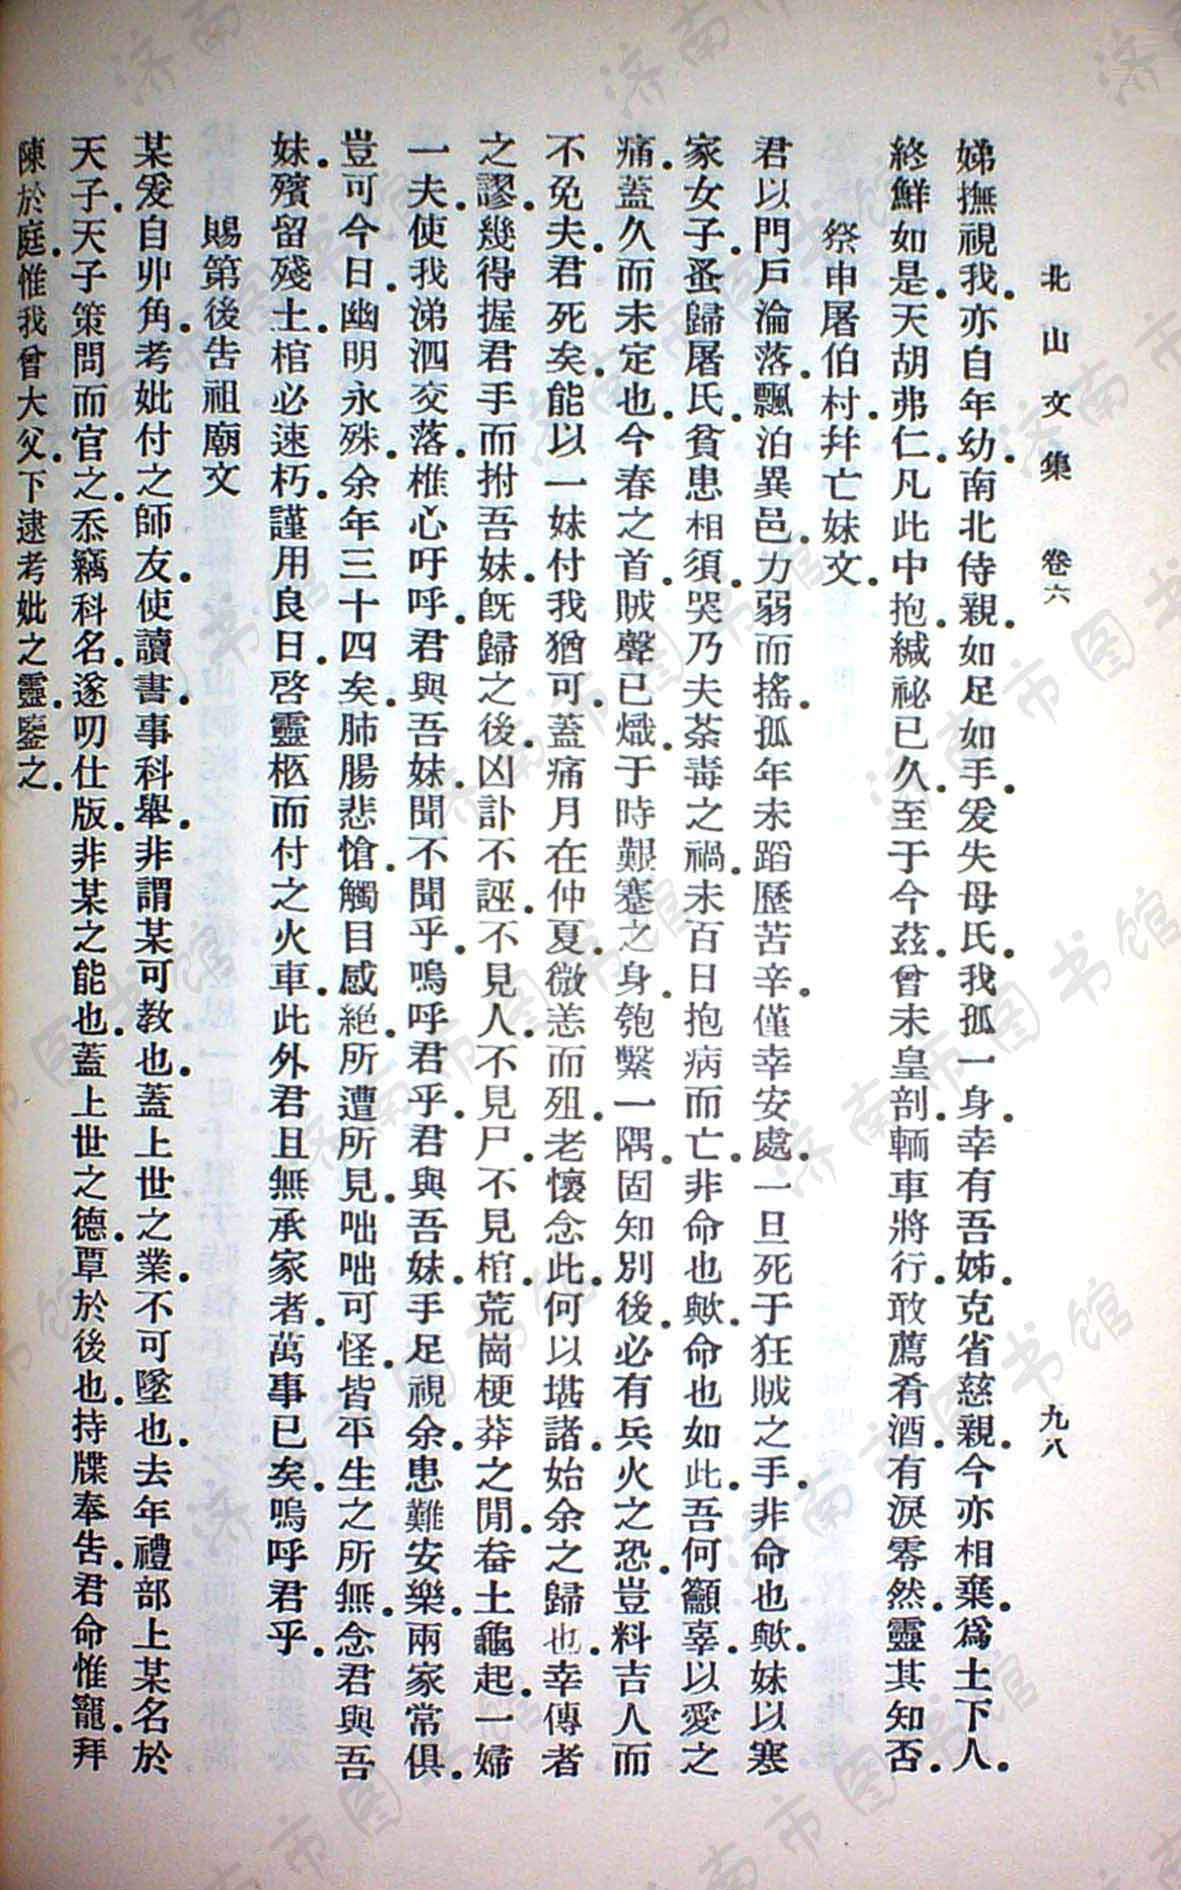 北山文集　卷六　九八
娣撫視我。亦自年幼。南北侍親。如足如手。爰失母氏。我孤一身。幸有吾姊。克省慈親。今亦相棄。爲土下人。
終鮮如是。天胡弗仁。凡此中抱。緘祕已久。至于今茲。曾未皇剖。輀車將行。敢薦肴酒。有淚零然。靈其知否。
祭申屠伯村。幷亡妹文。
君以門戶淪落。飄泊異邑。力弱而搖。孤年未蹈。歷苦辛。僅幸安處。一旦死于狂賊之手。非命也歟。妹以寒
家女子。蚤歸屠氏。貧患相須。哭乃夫荼毒之禍。未百日抱病而亡。非命也歟。命也如此。吾何籲辜。以愛之
痛。蓋久而未定也。今春之首。賊聲已熾。于時艱蹇之身。匏繫一隅。固知別後。必有兵火之恐。豈料吉人而
不免夫。君死矣。能以一妹付我猶可。蓋痛月在仲夏。微恙而殂。老懷念此。何以堪諸。始余之歸也。幸傳者
之謬。幾得握君手而拊吾妹。旣歸之後。凶訃不誣。不見人。不見尸。不見棺。荒崗梗莽之閒。畚土龜起。一婦
一夫。使我涕泗交落。椎心吁呼。君與吾妹。聞不聞乎。嗚呼君乎。君與吾妹。手足視余。患難安樂。兩家常俱。
豈可今日。幽明永殊。余年三十四矣。肺腸悲愴。觸目感絕。所遭所見。咄咄可怪。皆平生之所無。念君與吾
妹。殯留殘土。棺必速朽。謹用良日。啓靈柩而付之火車。此外君且無承家者。萬事已矣。嗚呼君乎。
賜第後告祖廟文
某爰自丱角。考妣付之師友。使讀書。事科舉。非謂某可教也。蓋上世之業。不可墜也。去年禮部上某名於
天子。天子策問而官之。忝竊科名。遂叨仕版。非某之能也。蓋上世之德。覃於後也。持牒奉告。君命惟寵。拜
陳於庭。惟我曾大父。下逮考妣之靈。鑒之。